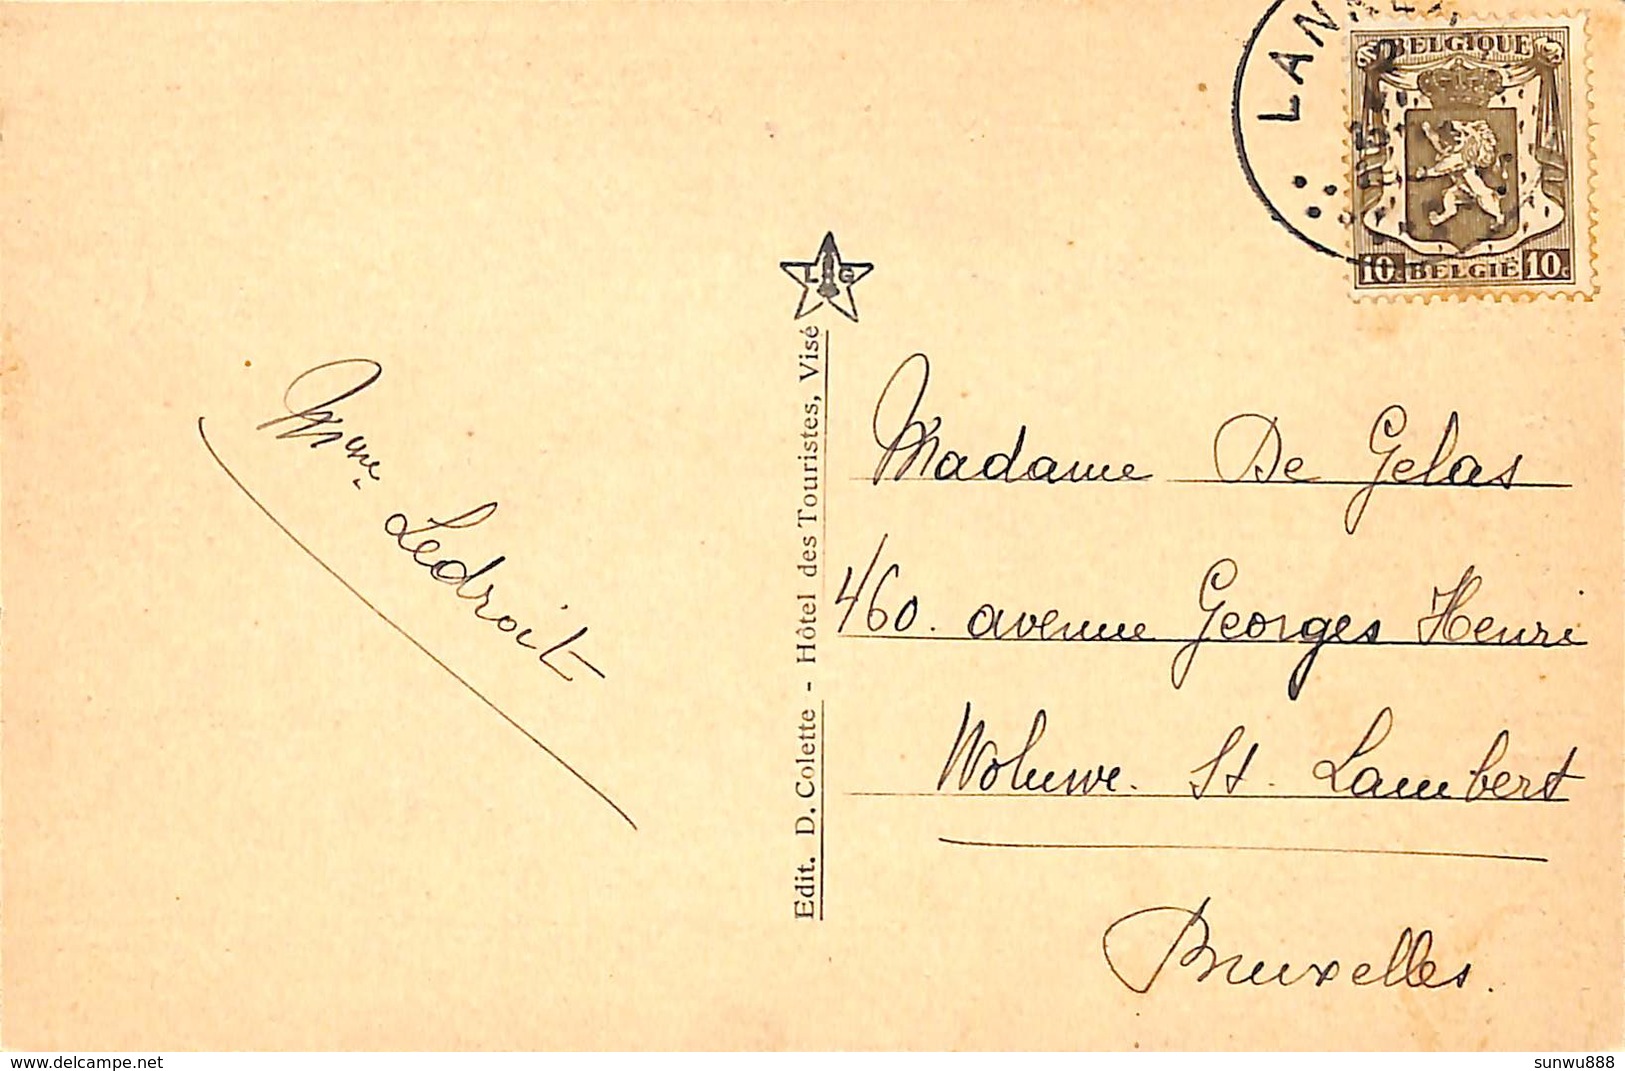 LANA
BELGIQUE
10c BELGIË 10c
L G
Edit. D. Colette - Hôtel des Touristes, Visé
Mme. Ledroit
Madame De Gelas
460. avenue Georges Henri
Woluwe. St. Lambert
Bruxelles.
delcampe.net
sunwu888